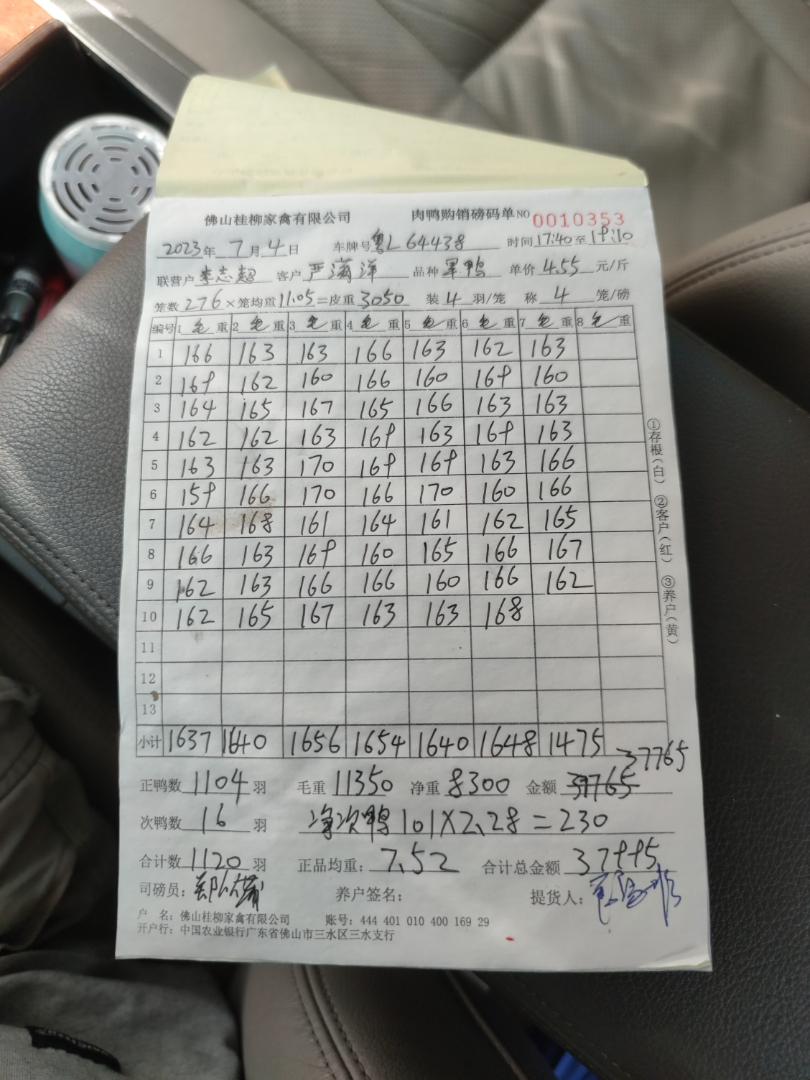 佛山桂柳家禽有限公司 肉鸭购销磅码单 NO 0010353
2023年 7月 4日 车牌号 粤L64438 时间 17:40至19:10
联营户 李志超 客户 严海洋 品种 单价 4.55 元/斤
笼数 276 × 笼均重 11.05 = 皮重 3050 装 4 羽/笼 称 4 笼/磅
编号 1 毛重 2 毛重 3 毛重 4 毛重 5 毛重 6 毛重 7 毛重 8 毛重
1 166 163 163 166 163 162 163
2 169 162 160 166 160 169 160
3 164 165 167 165 166 163 163
4 162 162 163 169 163 169 163
5 163 163 170 169 169 163 166
6 159 166 170 166 170 160 166
7 164 168 161 164 161 162 165
8 166 163 169 160 165 166 167
9 162 163 166 166 160 166 162
10 162 165 167 163 163 168
11
12
13
小计 1637 1640 1656 1654 1640 1648 1475
37765
正鸭数 1104 羽 毛重 11350 净重 8300 金额 37765
次鸭数 16 羽 净次鸭 101×2.28=230
合计数 1120 羽 正品均重: 7.52 合计总金额 37995
司磅员: 养户签名: 提货人:
户 名: 佛山桂柳家禽有限公司 账号: 444 401 010 400 169 29
开户行: 中国农业银行广东省佛山市三水区三水支行
①存根(白) ②客户(红) ③养户(黄)